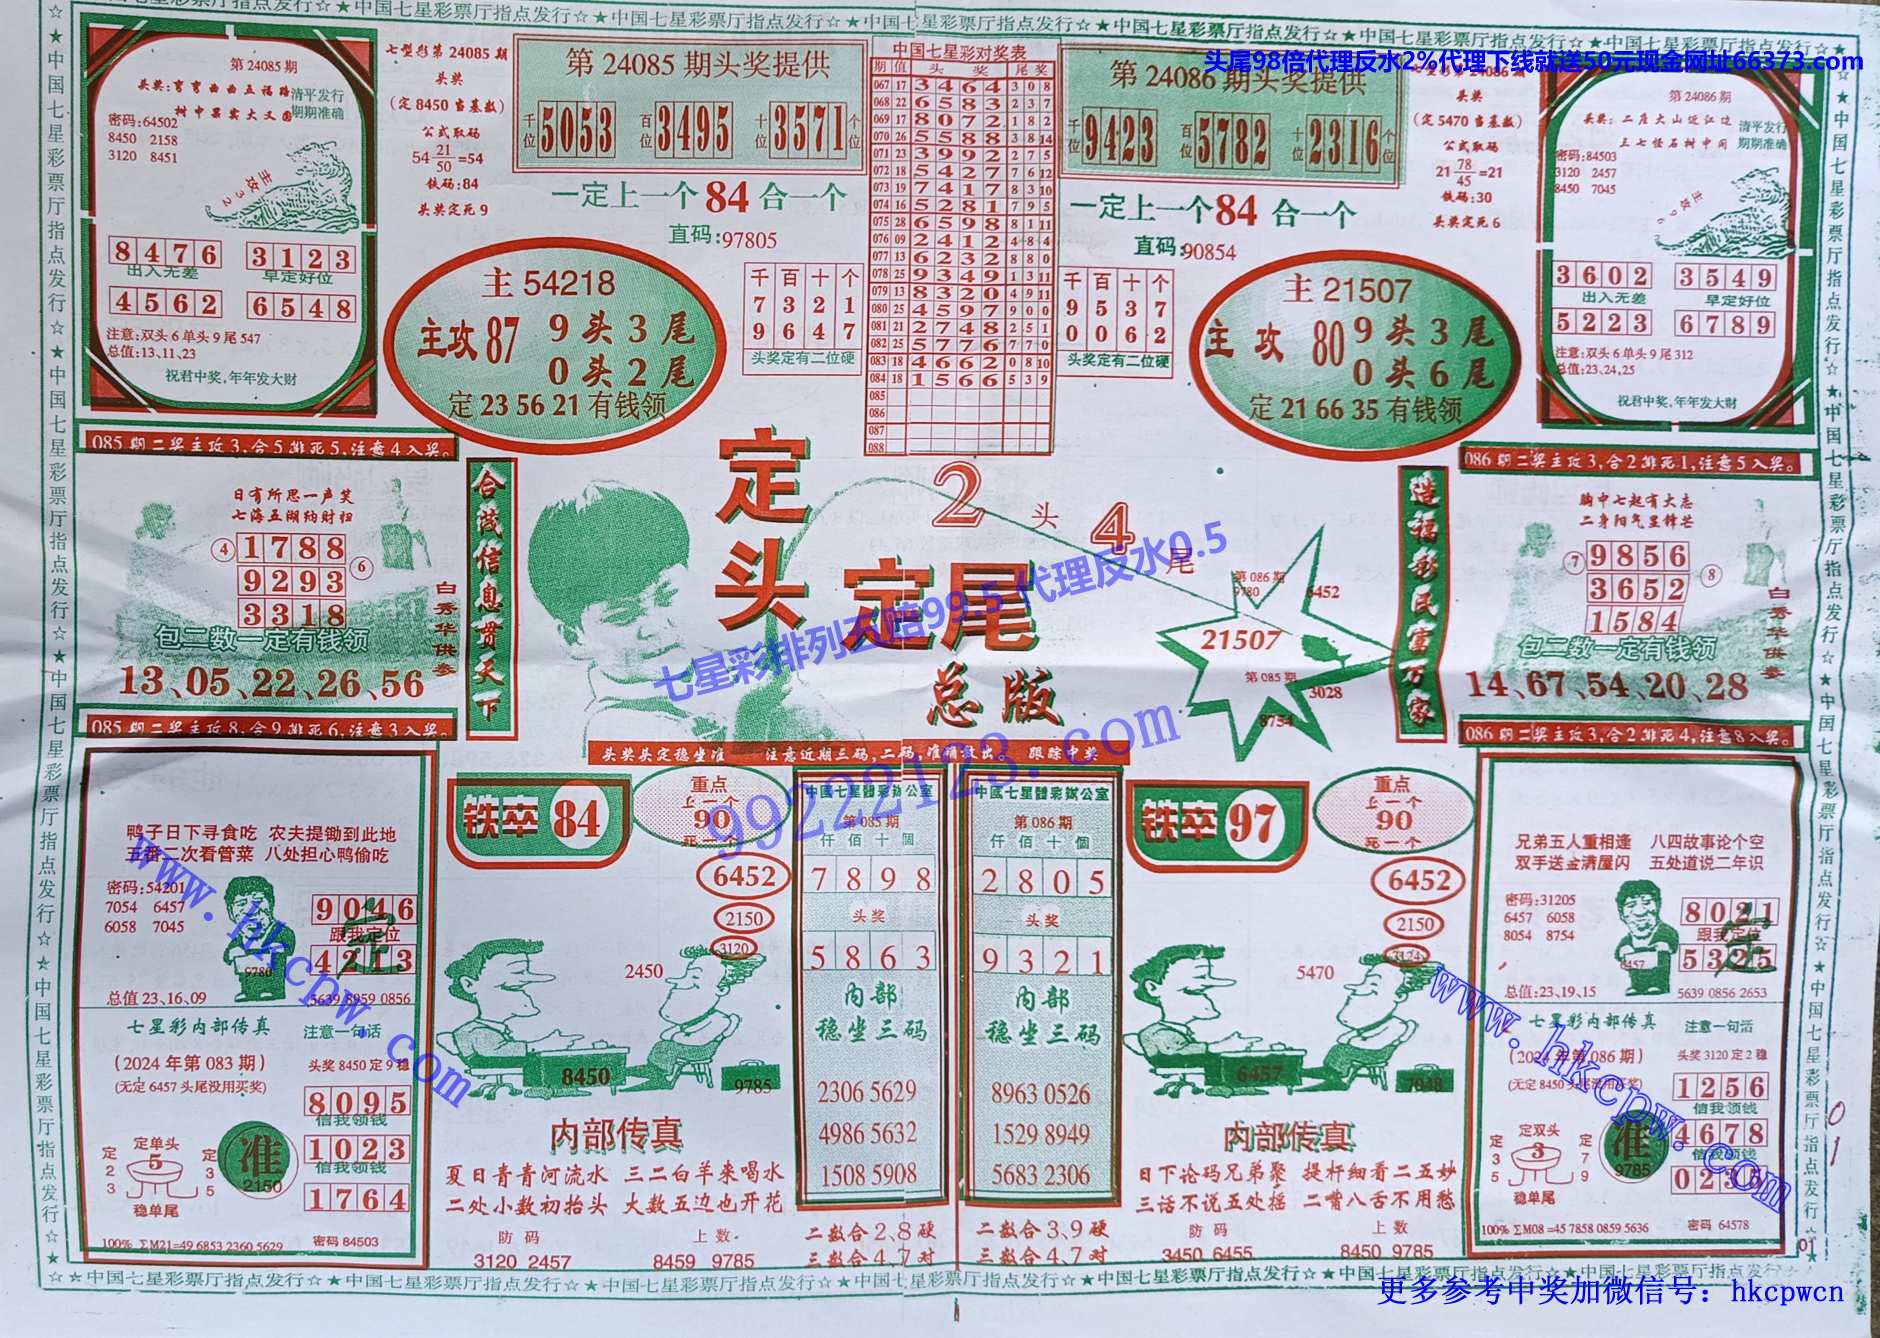 ☆★中国七星彩票厅指点发行☆★中国七星彩票厅指点发行☆★中国七星彩票厅指点发行☆★中国七星彩票厅指点发行☆★中国七星彩票厅指点发行☆★中国七星彩票厅指点发行☆★
头尾98倍代理反水2%代理下线就送50元现金网址66373.com
第24085期
头奖:弯弯曲曲五福路
树中果实大又圆
清平发行
期期准确
密码:64502
8450 2158
3120 8451
主攻32
8476 3123
出入无差 早定好位
4562 6548
注意:双头6单头9尾547
总值:13,11,23
祝君中奖,年年发大财
七型彩第24085期
头奖
(定8450当基数)
公式取码
54 21/50 =54
铁码:84
头奖定死9
第24085期头奖提供
千位 5053 百位 3495 十位 3571 个位
一定上一个84合一个
直码:97805
主54218
主攻87 9头3尾
0头2尾
定235621有钱领
千百十个
7321
9647
头奖定有二位硬
中国七星彩对奖表
期 值 头奖 尾奖
067 17 3464 308
068 22 6583 237
069 17 8072 182
070 26 5588 3814
071 23 3992 275
072 18 5427 7612
073 19 7417 8310
074 16 5281 795
075 28 6598 8111
076 09 2412 484
077 13 6232 880
078 25 9349 1311
079 13 8320 4911
080 25 4597 900
081 21 2748 251
082 25 5776 770
083 18 4662 0810
084 18 1566 539
085
086
087
088
第24086期头奖提供
千位 9423 百位 5782 十位 2316 个位
一定上一个84合一个
直码:90854
千百十个
9537
0062
头奖定有二位硬
主21507
主攻80 9头3尾
0头6尾
定216635有钱领
七型彩第24086期
头奖
(定5470当基数)
公式取码
21 78/45 =21
铁码:30
头奖定死6
第24086期
头奖:二座大山近江边
三七怪石树中间
清平发行
期期准确
密码:84503
3120 2457
8450 7045
主攻96
3602 3549
出入无差 早定好位
5223 6789
注意:双头6单头9尾312
总值:23,24,25
祝君中奖,年年发大财
085期二奖主攻3,合5排死5,注意4入奖。
日有所思一声笑
七海五湖纳财归
④ 1788
9293 ⑥
3318
包二数一定有钱领
白秀华供参
13、05、22、26、56
085期二奖主攻8,合9排死6,注意3入奖。
合茂信息贯天下
定头
定尾
总版
2头4尾
第086期
9780
6452
21507
第085期
3028
8754
造福彩民富万家
七星彩排列五赔99.5代理反水0.5
99222123.com
086期二奖主攻3,合2排死1,注意5入奖。
胸中七起有大志
二身阳气显锋芒
⑦ 9856
3652 ⑧
1584
包二数一定有钱领
白秀华供参
14、67、54、20、28
086期二奖主攻3,合2排死4,注意8入奖。
头奖头定稳坐准 注意近期三码,二码,准确发出 跟踪中奖
鸭子日下寻食吃 农夫提锄到此地
五番二次看管菜 八处担心鸭偷吃
密码:54201
7054 6457
6058 7045
9780
9046
跟我定位
4213
总值23、16、09
5639 8959 0856
七星彩内部传真 注意一句话
(2024年第083期) 头奖8450定9稳
(无定6457头尾没用买奖)
8095
信我领钱
1023
信我领钱
1764
定单头
5
定23 定35
稳单尾
准
2150
100% ΣM21=49 6853 2360 5629 密码84503
www.hkcpw.com
铁卒84
重点
上一个
90
死一个
6452
2150
3120
2450
8450
9785
内部传真
夏日青青河流水 三二白羊来喝水
二处小数初抬头 大数五边也开花
防码 上数
3120 2457 8459 9785
中國七星體彩辦公室
第085期
仟佰十個
7898
头奖
5863
内部
稳坐三码
2306 5629
4986 5632
1508 5908
二数合2、8硬
三数合4、7对
中國七星體彩辦公室
第086期
仟佰十個
2805
头奖
9321
内部
稳坐三码
8963 0526
1529 8949
5683 2306
二数合3、9硬
三数合4、7对
铁卒97
重点
上一个
90
死一个
6452
2150
3124
5470
6457
7048
内部传真
日下论码兄弟聚 提杆细看二五妙
三话不说五处摇 二嘴八舌不用愁
防码 上数
3450 6455 8450 9785
兄弟五人重相逢 八四故事论个空
双手送金满屋闪 五处道说二年识
密码:31205
6457 6058
8054 8754
6457
8021
跟我定位
5325
总值:23、19、15
5639 0856 2653
七星彩内部传真 注意一句话
(2024年第086期) 头奖3120定2稳
(无定8450头尾没用买奖)
1256
信我领钱
4678
信我领钱
定双头
3
定35 定79
稳单尾
准
9785
100% ΣM08=45 7858 0859 5636 密码 64578
www.hkcpw.com
01
更多参考中奖加微信号: hkcpwcn
☆★中国七星彩票厅指点发行☆★中国七星彩票厅指点发行☆★中国七星彩票厅指点发行☆★中国七星彩票厅指点发行☆★中国七星彩票厅指点发行☆★中国七星彩票厅指点发行